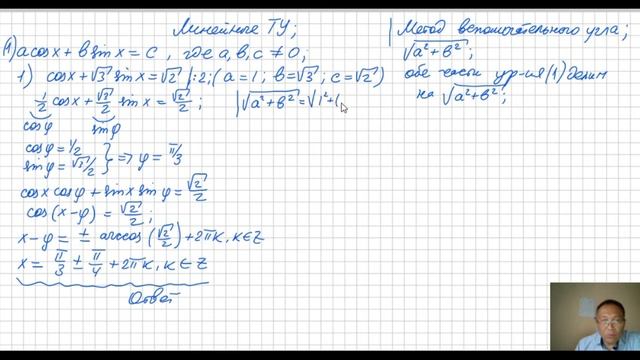 Линейные ТУ;
(1) a cos x + b sin x = c , где a, b, c ≠ 0;
1) cos x + √3 sin x = √2 |:2; (a = 1; b = √3; c = √2)
1/2 cos x + √3/2 sin x = √2/2 ;
cos φ sin φ
cos φ = 1/2
sin φ = √3/2 } => φ = π/3
cos x cos φ + sin x sin φ = √2/2
cos (x - φ) = √2/2 ;
x - φ = ± arccos (√2/2) + 2πk, k ∈ Z
x = π/3 ± π/4 + 2πk, k ∈ Z
Ответ
√a² + b² = √1² + (
Метод вспомогательного угла;
√a² + b² ;
обе части ур-ия (1) делим
на √a² + b² ;